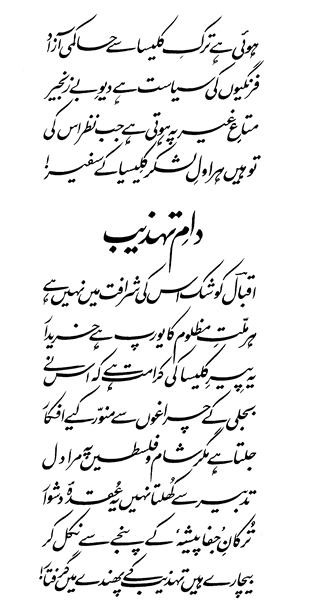 ہوئی ہے ترکِ کلیسا سے حاکمی آزاد
فرنگیوں کی سیاست ہے دیوِ بے زنجیر
متاعِ غیر پہ ہوتی ہے جب نظر اس کی
تو ہیں ہراولِ لشکر کلیسیا کے سفیر!
دامِ تہذیب
اقبالؔ کو شک اس کی شرافت میں نہیں ہے
ہر ملّتِ مظلوم کا یورپ ہے خریدار
یہ پیرِ کلیسا کی کرامت ہے کہ اس نے
بجلی کے چراغوں سے منوّر کیے افکار
جلتا ہے مگر شام و فلسطیں پہ مرا دل
تدبیر سے کھلتا نہیں یہ عقدۂ دشوار
تُرکانِ 'جفا پیشہ' کے پنجے سے نکل کر
بیچارے ہیں تہذیب کے پھندے میں گرفتار!